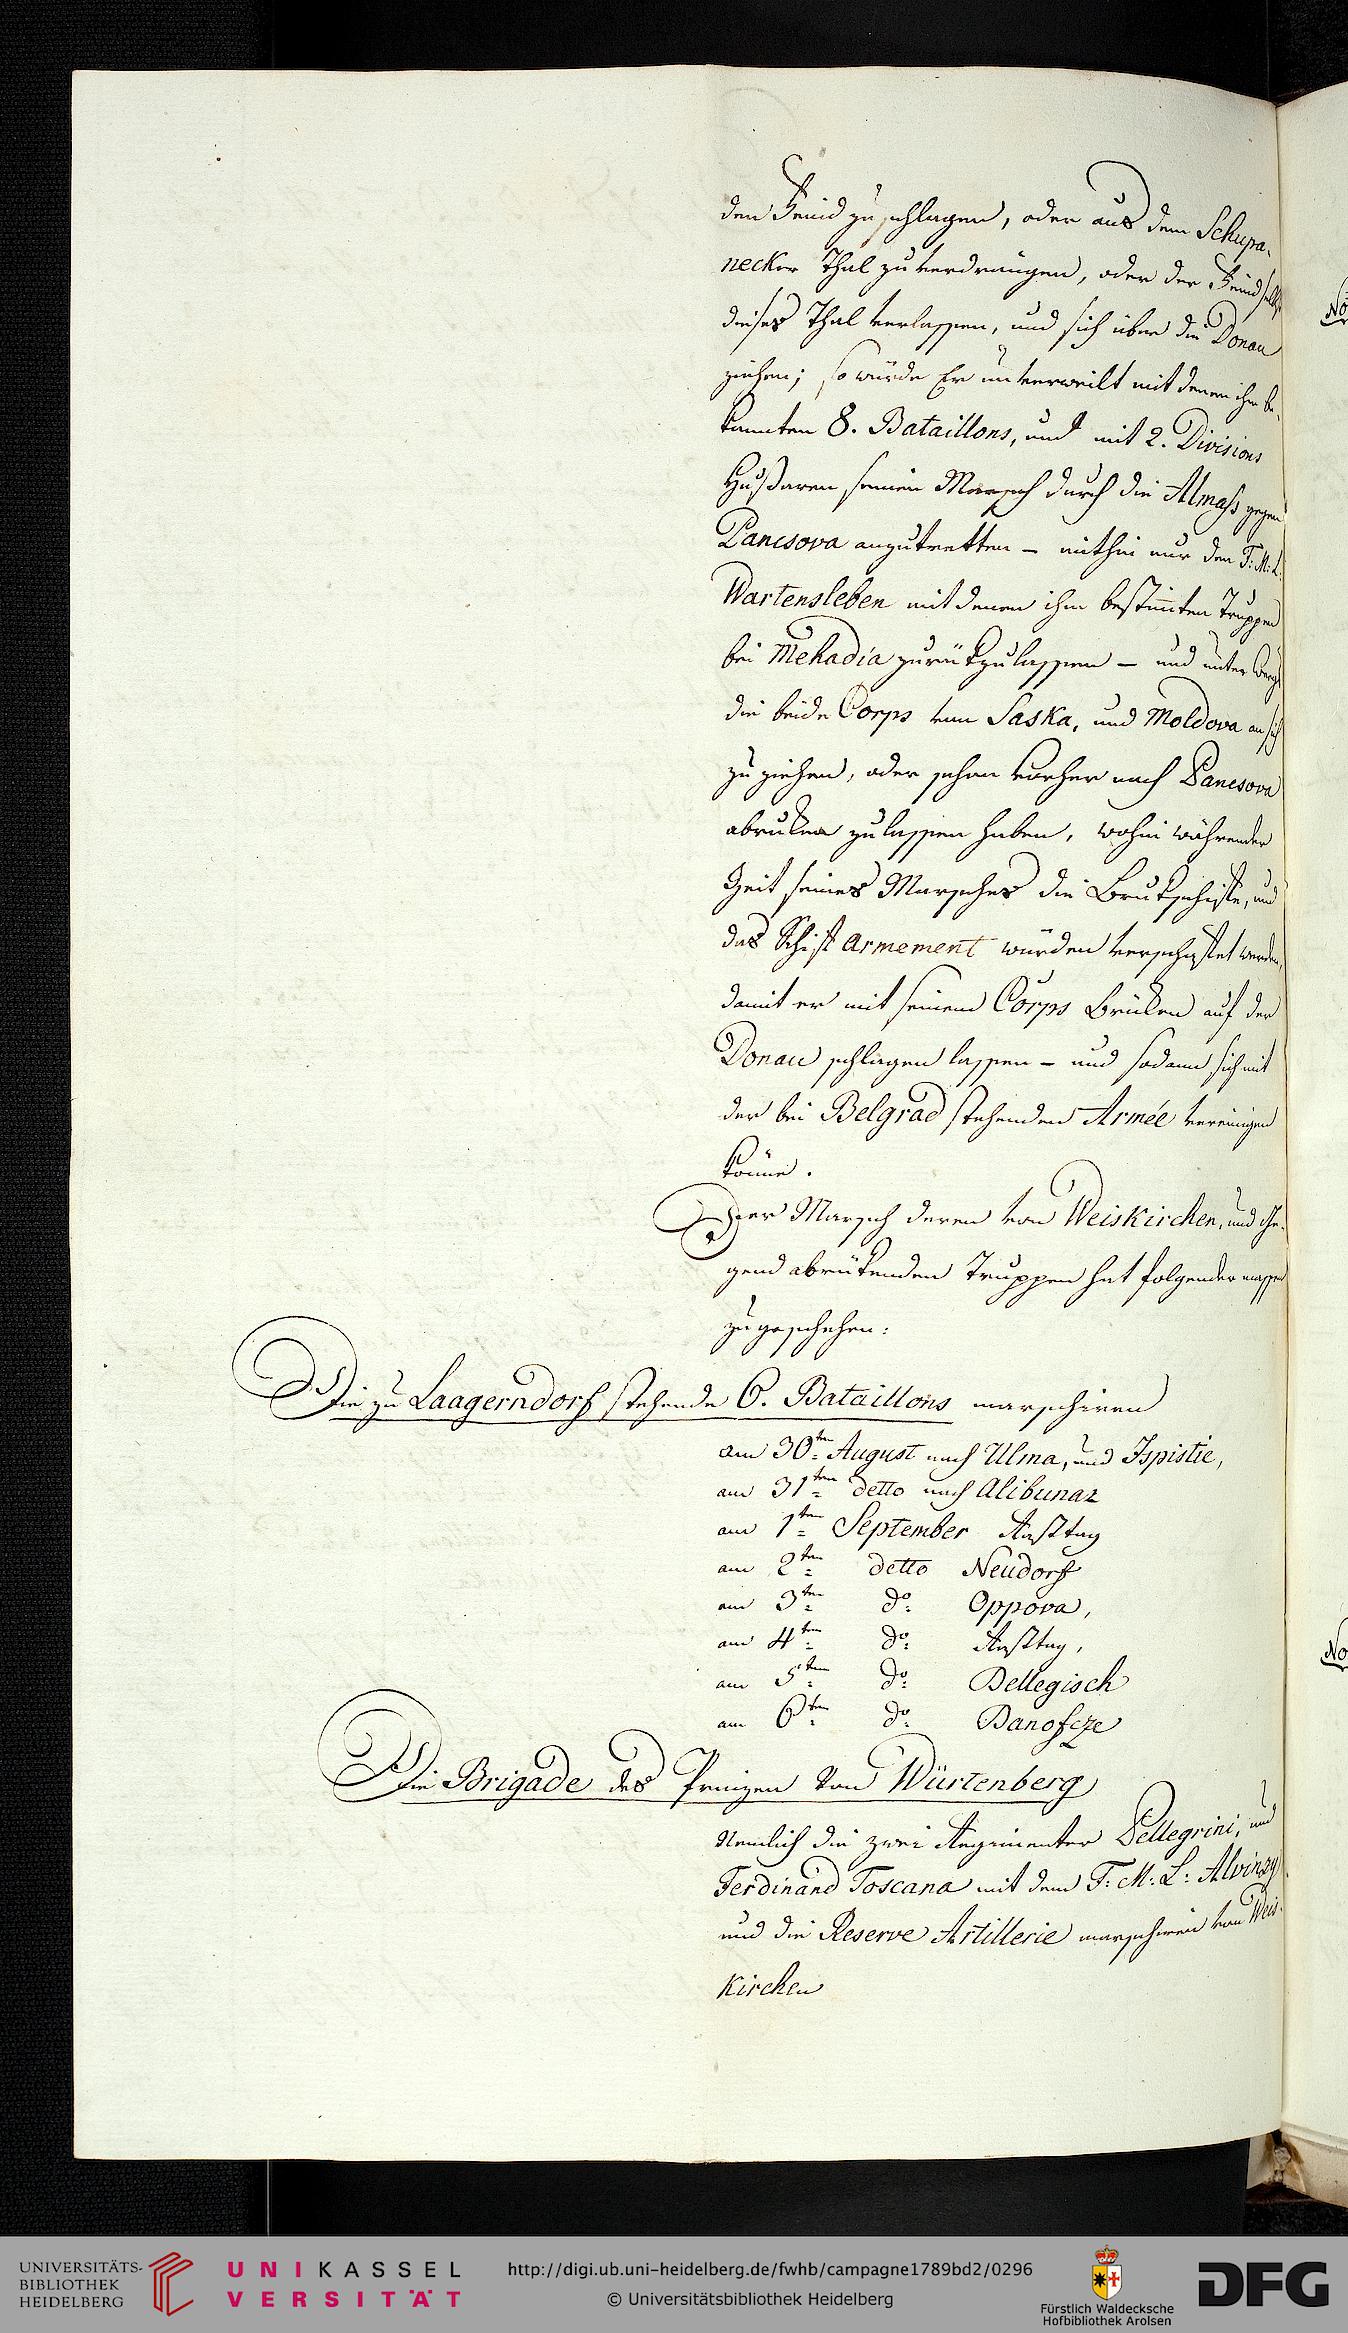 den Feind zu schlagen, oder aus dem Schupa-
necker Thal zu verdrängen, oder der Feind selbst
dieses Thal verlassen, und sich über die Donau
ziehen; so würde Er unverweilt mit denen ihm be-
kannten 8. Bataillons, und mit 2. Divisions
Hußaren seinen Marsch durch die Almass gegen
Pancsova anzutretten – mithin nur den F: M: L:
Wartensleben mit denen ihm bestim̅ten Truppen
bei Mehadia zurükzulassen – und unter Wegs
die beide Corps von Saska, und Moldova an sich
zu ziehen, oder schon vorher nach Pancsova
abruken zu lassen haben, wohin während der
Zeit seines Marsches die Brukschiffe, und
das Schif armement würden verschaffet werden,
damit er mit seinem Corps Brüken auf der
Donau schlagen lassen – und sodann sich mit
der bei Belgrad stehenden Armée vereinigen
könne.
Der Marsch deren von Weiskirchen, und
gend abrükenden Truppen hat folgendermassen
zu geschehen:
Die zu Laagerndorf stehende 6. Bataillons marschiren
am 30ten August nach Ulma, und Ispistie,
am 31ten detto nach Alibunar
am 1ten September Rasttag
am 2ten detto Neudorf
am 3ten do: Oppova,
am 4ten do: Rasttag,
am 5ten do: Bellegisch
am 6ten do: Banofcze
Die Brigade des Prinzen von Würtenberg
Nemlich die zwei Regimenter Pellegrini, und
Ferdinand Toscana mit dem F: M: L: Alvinzy
und die Reserve Artillerie marschiren von Weis-
kirchen
No
No
UNIVERSITÄTS-
BIBLIOTHEK
HEIDELBERG
UNIKASSEL
VERSITÄT
http://digi.ub.uni-heidelberg.de/fwhb/campagne1789bd2/0296
© Universitätsbibliothek Heidelberg
Fürstlich Waldecksche
Hofbibliothek Arolsen
DFG